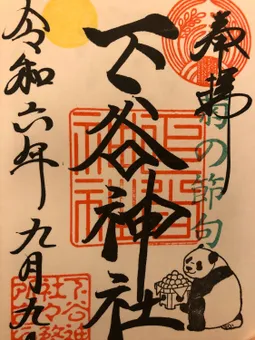 奉拝
菊の節句
下谷神社
令和六年九月九
下谷神
社々務